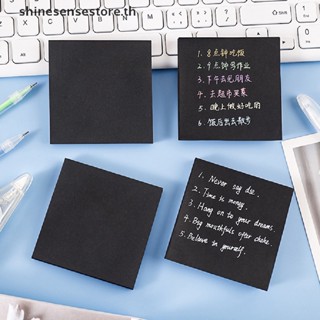 shinesensestore.th
1. 8点钟吃饭
2. 9点钟写作业
3. 下午去见朋友
4. 去超市买菜
5. 晚上做好吃的
6. 饭后出去散步
1. Never say die.
2. Time is money.
3. Hang on to your dreams.
4. Big mouthfuls often choke.
5. Believe in yourself.